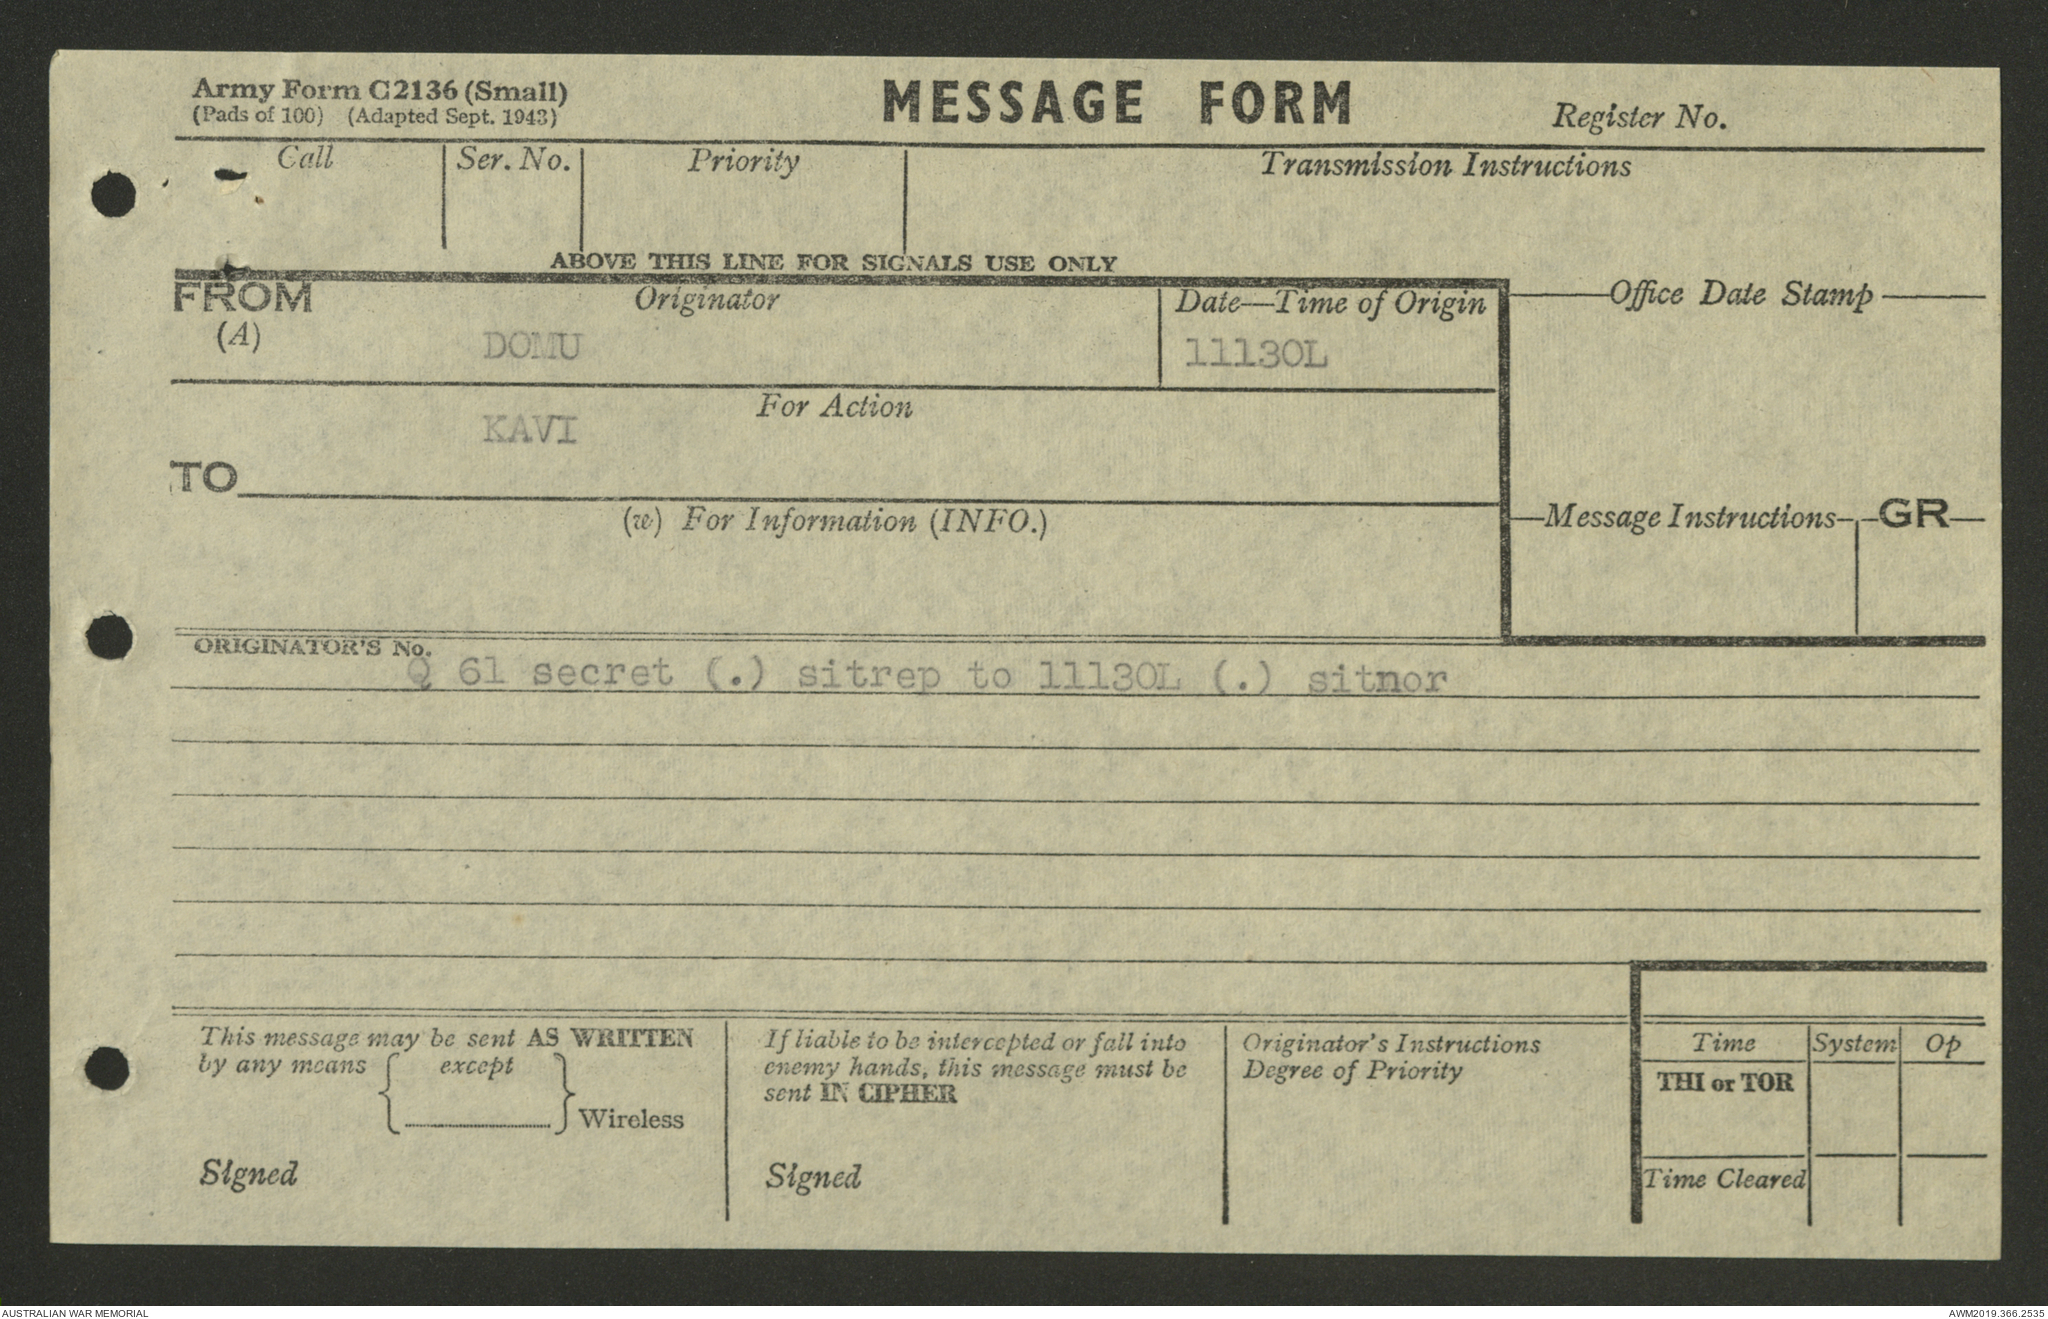 Army Form C2136 (Small)
(Pads of 100) (Adapted Sept. 1943)
MESSAGE FORM
Register No.
Call Ser. No. Priority Transmission Instructions
ABOVE THIS LINE FOR SIGNALS USE ONLY
FROM Originator Date—Time of Origin Office Date Stamp
(A) DOMU 111130L
For Action
KAVI
TO
(w) For Information (INFO.) Message Instructions GR
ORIGINATOR'S No.
Q 61 secret (.) sitrep to 111130L (.) sitnor
This message may be sent AS WRITTEN
by any means except
Wireless
Signed
If liable to be intercepted or fall into
enemy hands, this message must be
sent IN CIPHER
Signed
Originator's Instructions
Degree of Priority
Time System Op
THI or TOR
Time Cleared
AUSTRALIAN WAR MEMORIAL AWM2019.366.2535